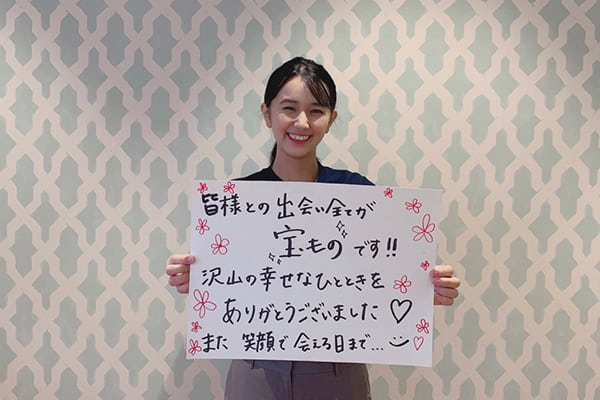 皆様との出会い全てが
宝ものです!!
沢山の幸せなひとときを
ありがとうございました♡
また 笑顔で会える日まで…